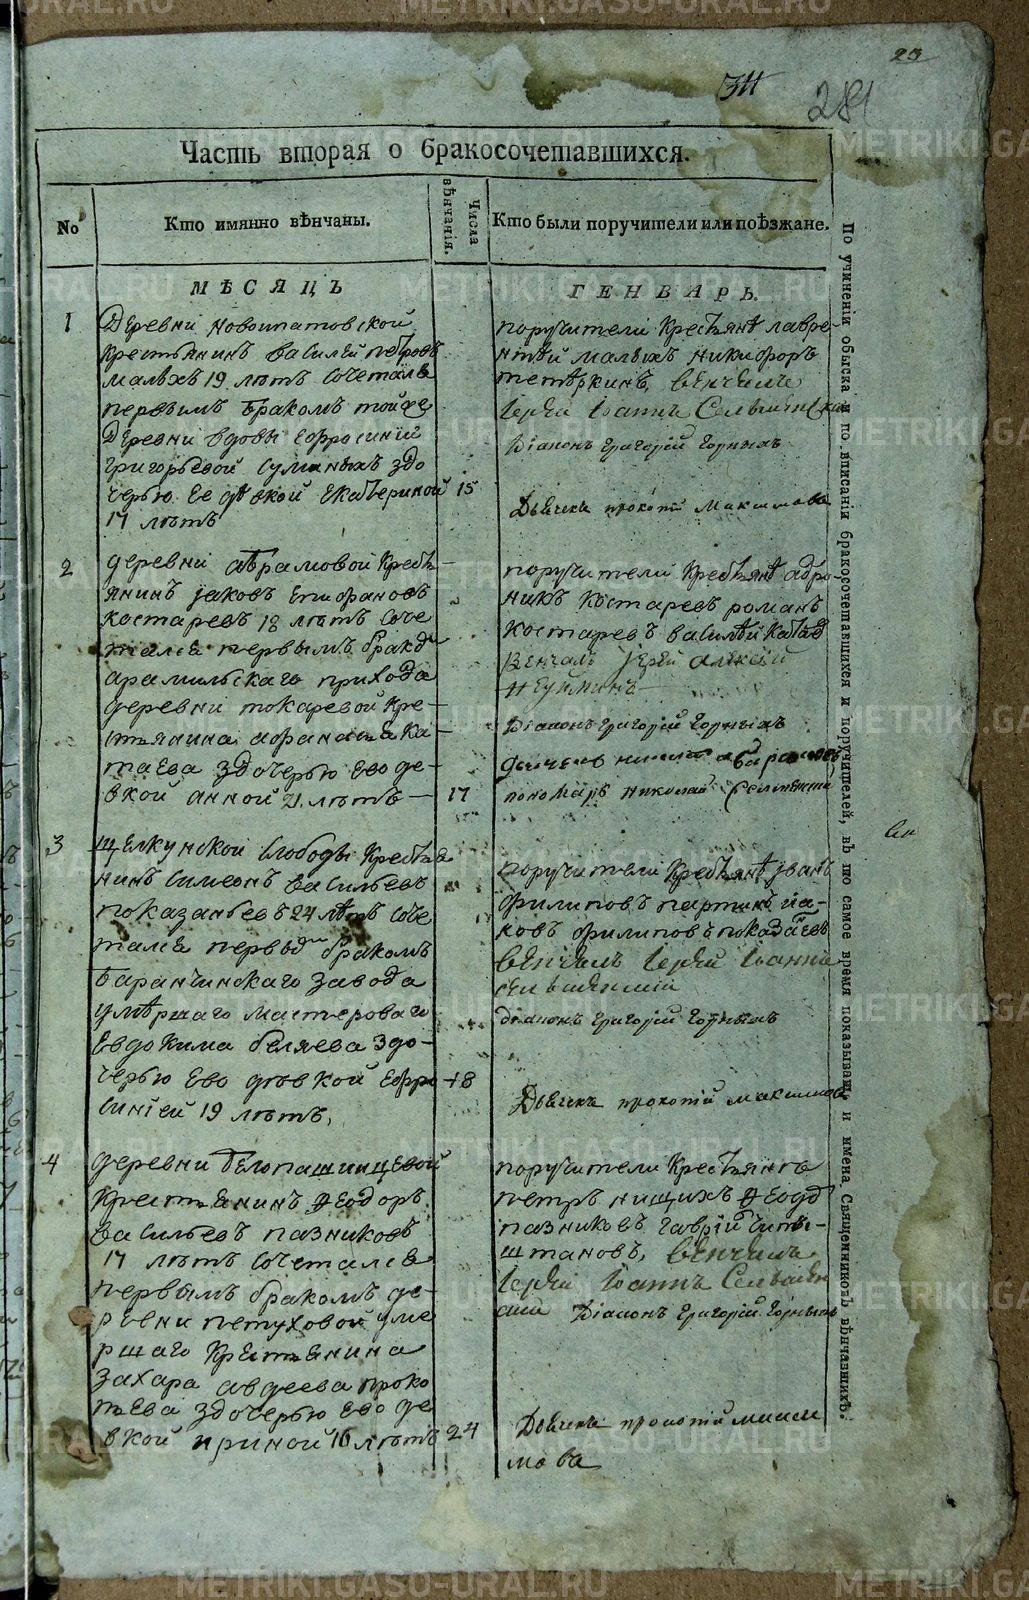 23
311
281
Часть вторая о бракосочетавшихся.
No
Кто имянно вѣнчаны.
Числа вѣнчанія.
Кто были поручители или поѣзжане.
МѢСЯЦЪ
ГЕНВАРЬ.
1
Деревни новоипатовской
крестьянинъ василей петровъ
малыхъ 19 лѣтъ сочетался
первымъ бракомъ тойже
Деревни вдовы ефросиніи
григорьевой сумныхъ здо
черью ее дѣвкой екатериной 15
17 лѣтъ
поручители крестьянѣ лавре-
нтѣй малыхъ никифоръ
тетѣркинъ, венчалъ
іерей іоаннъ
Діаконъ григорій горныхъ
Дьячекъ прокопій максимовъ
2
деревни абрамовой кресть
янинъ іаковъ епифановъ
костаревъ 18 лѣтъ соче
тался первымъ бракомъ
арамильскаго прихода
деревни токаревой кре-
стьянина афанасья ка-
таева здочерью ево де-
вкой анной 21 лѣтъ — 17
поручители крестьянѣ
никъ костаревъ романъ
костаревъ василѣй
Венчалъ іерей алексій
Діаконъ григорій горныхъ
пономарь николай
3
щелкунской слободы крестья
нинъ симеонъ васильевъ
показаньевъ 24 лѣтъ соче
тался первымъ бракомъ
баранчинскаго завода
умѣршаго мастероваго
Евдокима беляева здо-
черью ево дѣвкой ефро- 18
синіей 19 лѣтъ,
поручители крестьянѣ іванъ
филиповъ партинъ іа-
ковъ филиповъ показаневъ
венчалъ іерей іоаннъ
діаконъ григорій горныхъ
Дьячекъ прокопій максимовъ
4
деревни белопашинцевой
крестьянинъ Ѳеодоръ
васильевъ пазниковъ
17 лѣтъ сочетался
первымъ бракомъ де-
ревни петуховой уме
ршаго крестьянина
захара авдеева проко
пьева здочерью ево де
вкой ириной 16 лѣтъ 24
поручители крестьянѣ
петръ нищихъ Ѳеодо
пазниковъ гаврій
штановъ, венчалъ
іерей іоаннъ
Діаконъ григорій горныхъ
Дьячекъ прокопій макси
мовъ
По учиненіи обыска и по вписаніи бракосочетавшихся и поручителей, въ то самое время показывать и имена Священниковъ вѣнчавшихъ.
METRIKI.GASO-URAL.RU